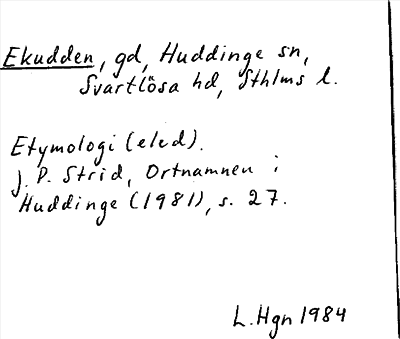 Ekudden, gd, Huddinge sn,
Svartlösa hd, Sthlms l.
Etymologi (eled).
J. P. Strid, Ortnamnen i
Huddinge (1981), s. 27.
L. Hgn 1984